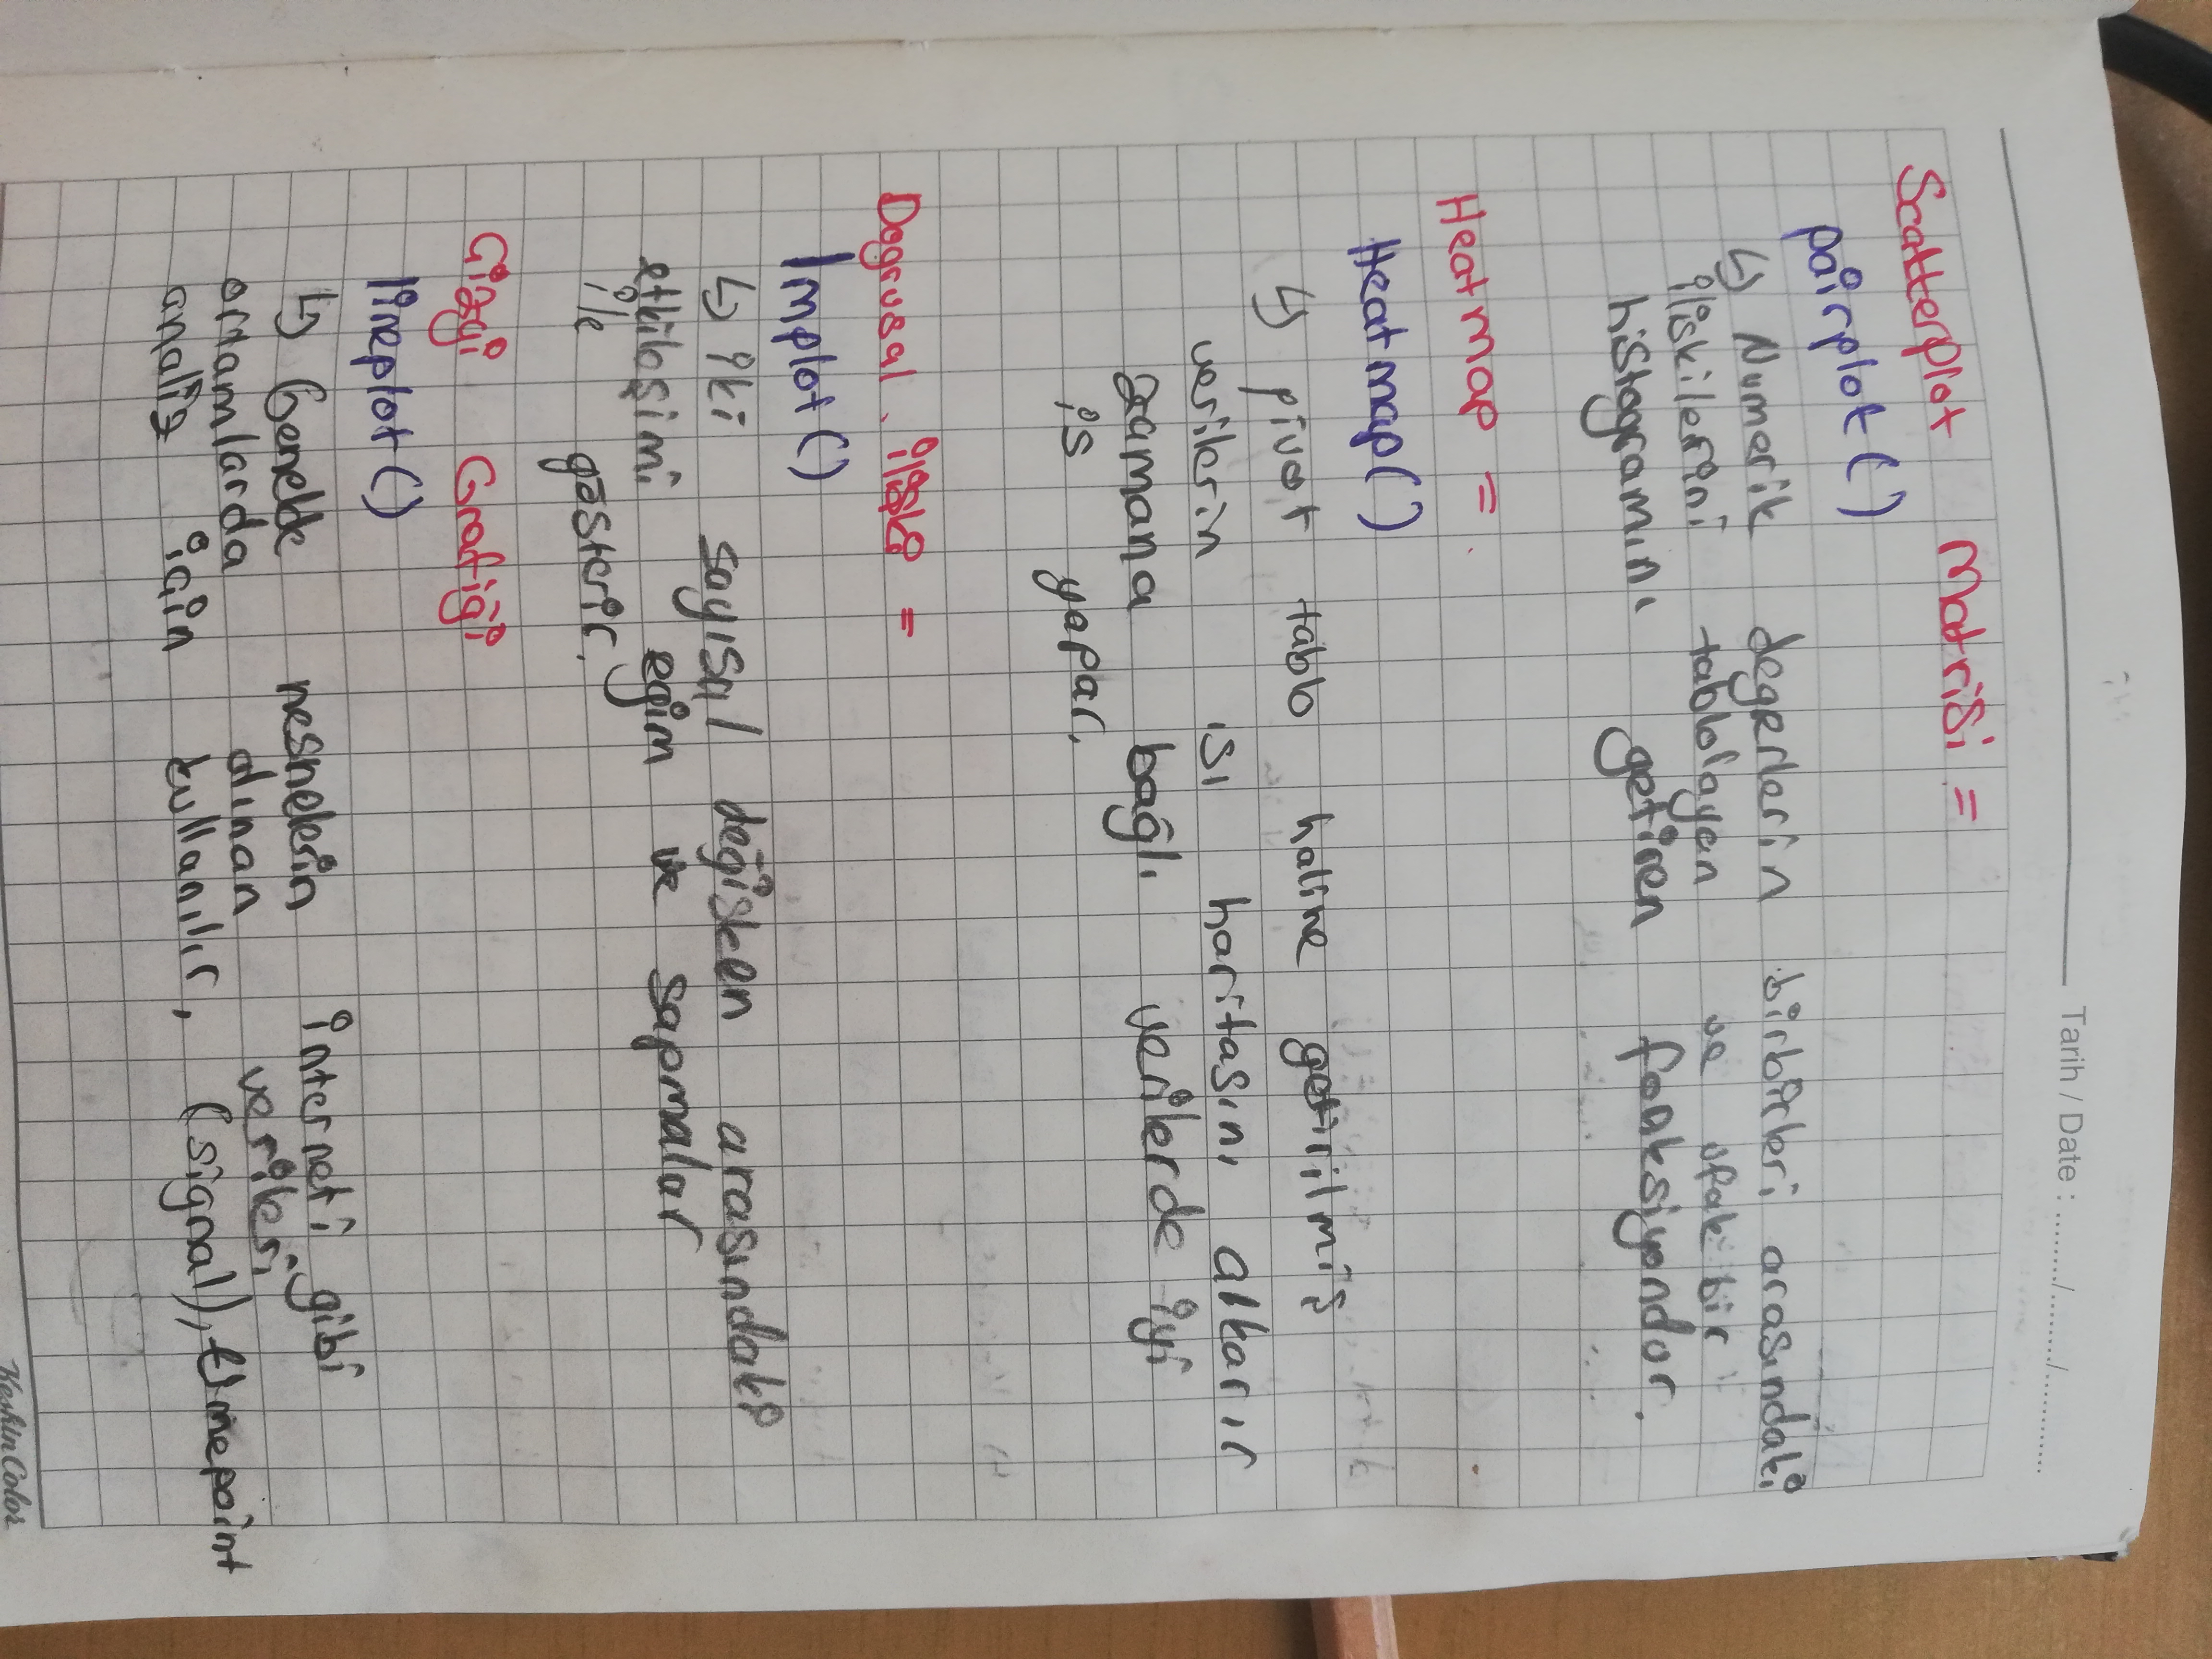 Tarih / Date : ......../......../............
Scatterplot Matrisi =
pairplot()
↳ Numerik degerlerin birbirleri arasındaki
iliskilerini tablolayan ve ufak bir
histogramını getiren fonksiyondur.
Heatmap =
Heatmap()
↳ pivot tablo haline getirilmiş
verilerin ısı haritasını
zamana bağlı verilerde iyi
is yapar.
Dogrusal ilişki =
lmplot()
↳ iki sayısal değisken arasındaki
etkileşimi egim ve sapmalar
ile gösterir.
Çizgi Grafiği
lineplot()
↳ Genelde nesnelerin interneti gibi
ortamlarda alınan verileri
analiz için kullanılır, (signal), timepoint
KeskinColor